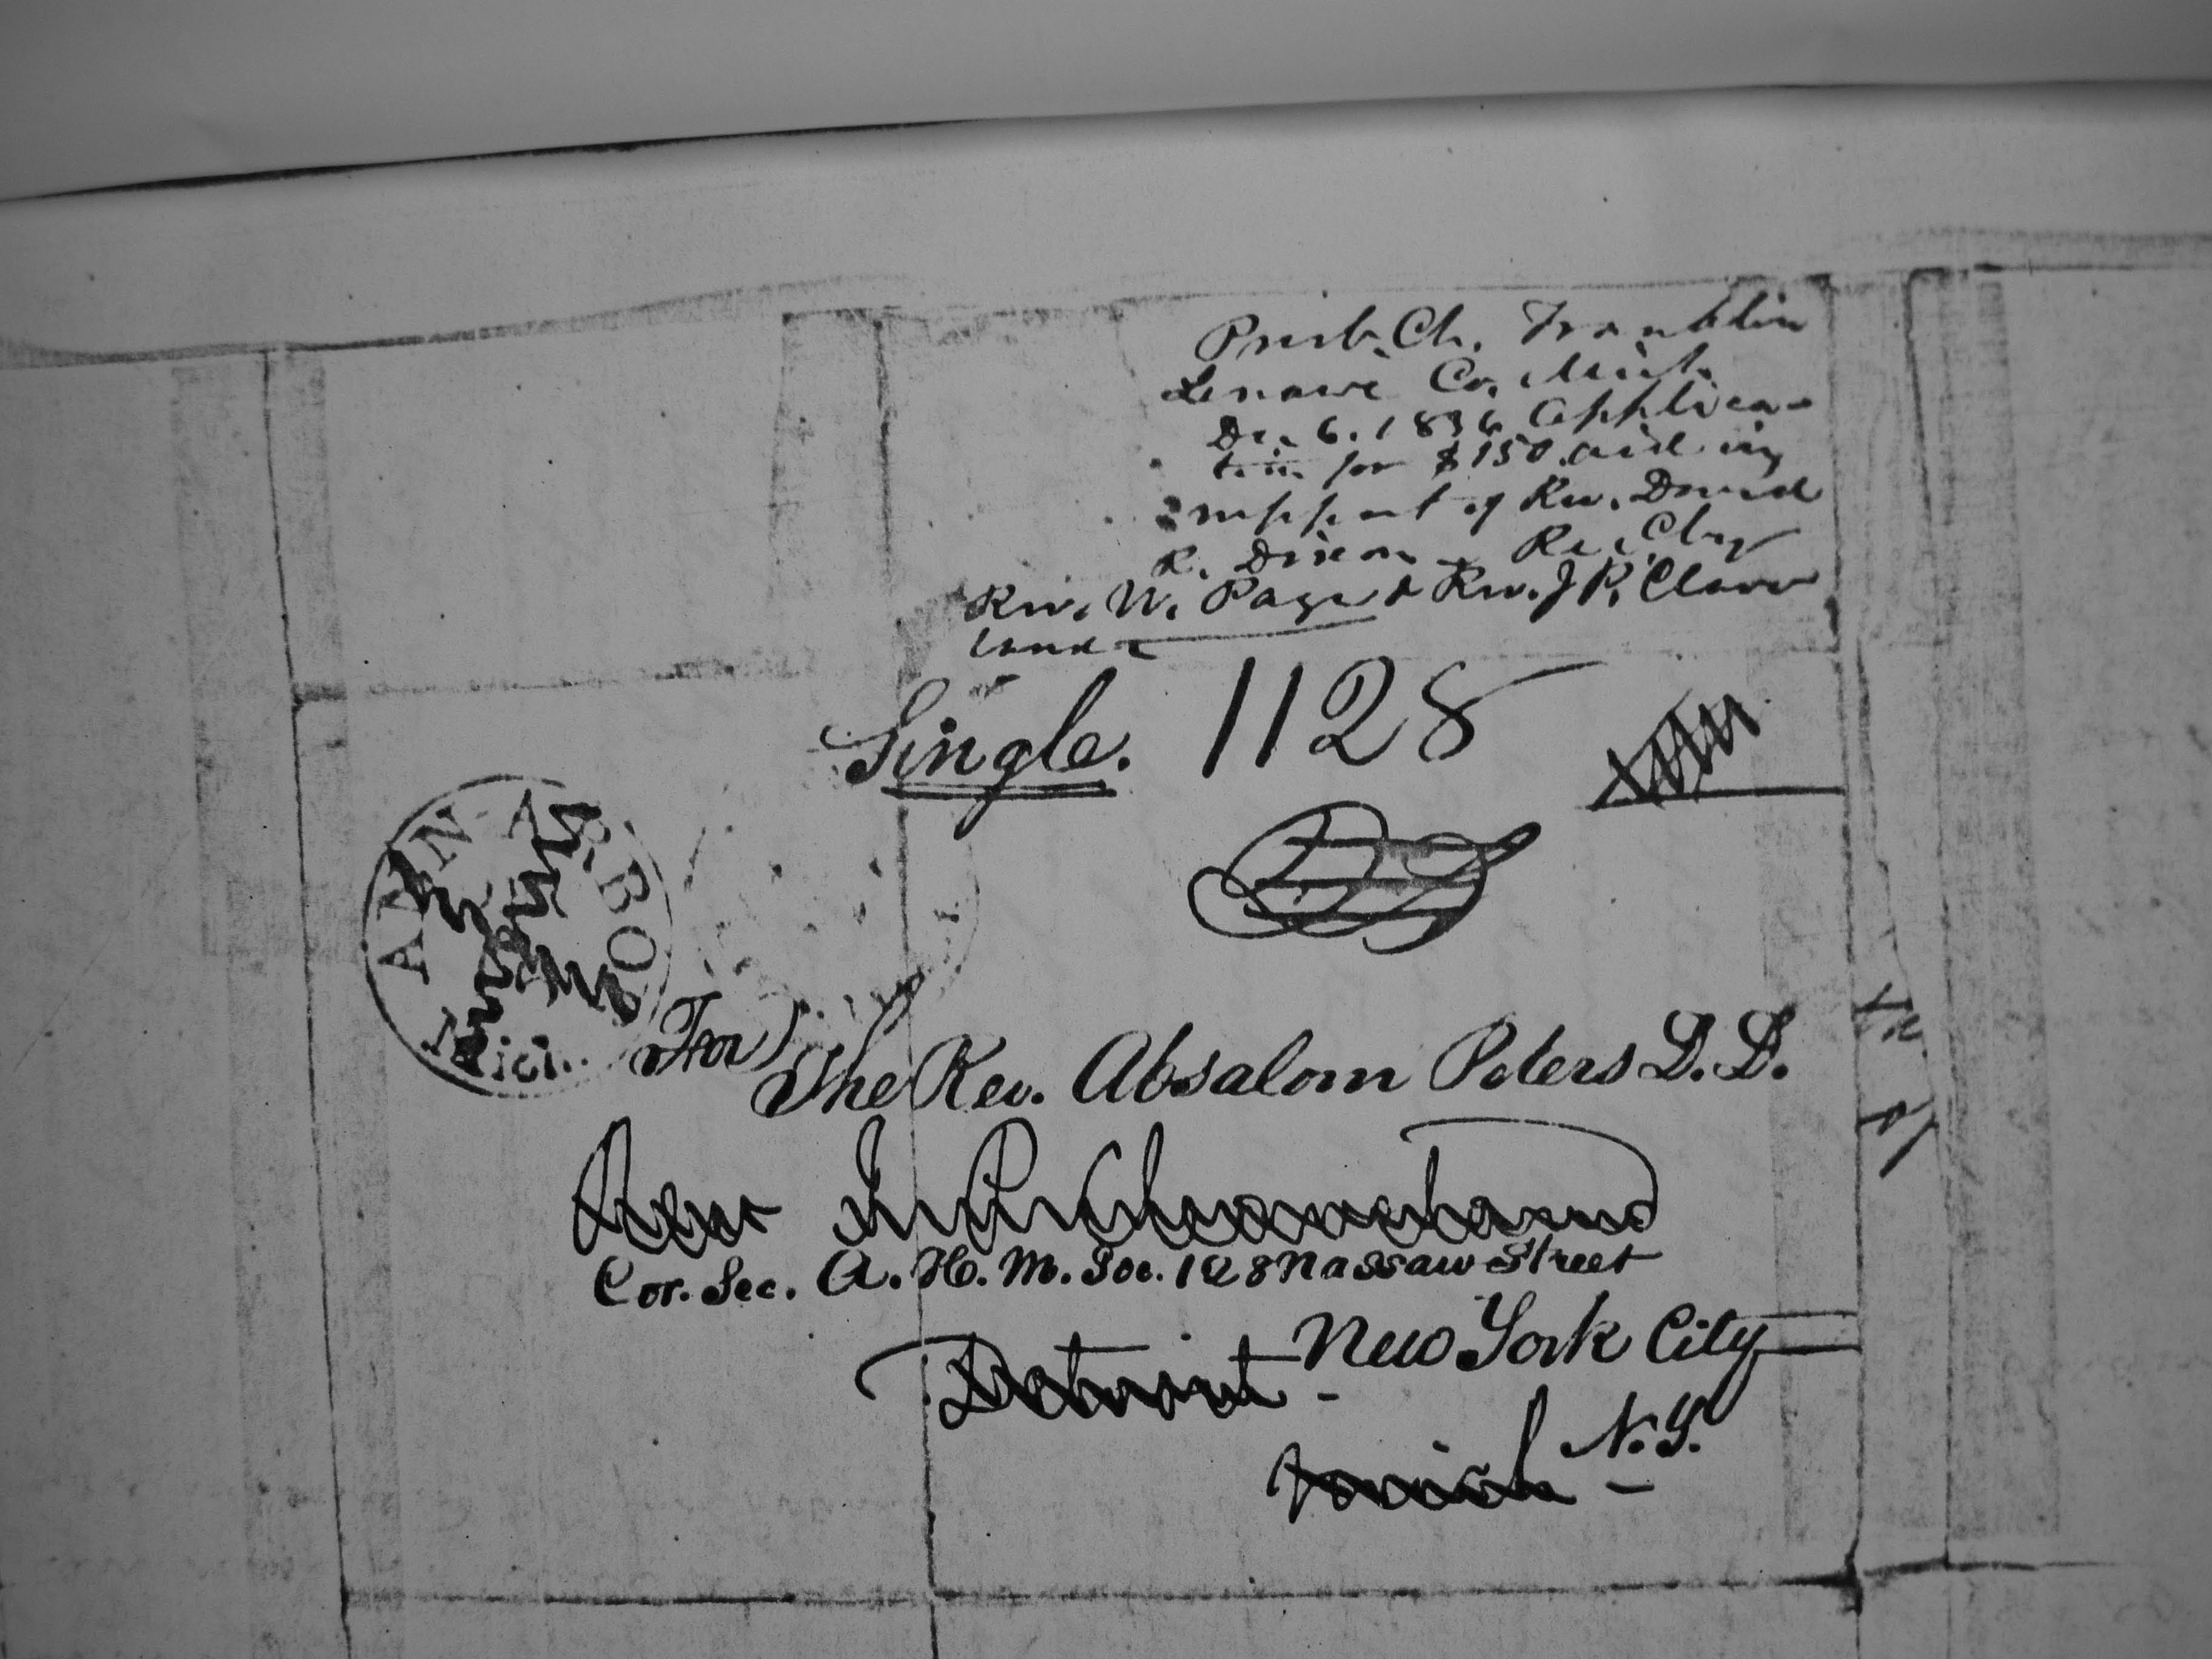 Presb. Ch. Franklin
Lenawe Co. Mich.
Dec. 6. 1836 Applica-
tion for $150 aid in
support of Rev. David
R. Dixon Re,
Rev. W. Page & Rev. J P. Cleave
land
Single. 1128
ANN ARBOR
Mich.
For
The Rev. Absalom Peters D. D.
Rev J. P. Cleaveland
Cor. Sec. A. H. M. Soc. 128 Nassaw Street
Detroit - New York City
Mich N. Y.